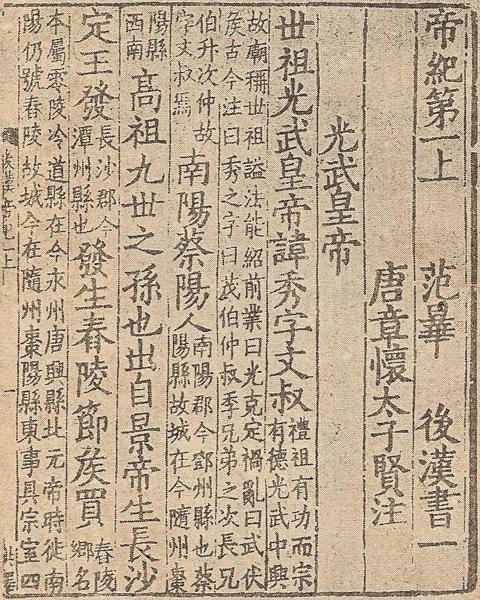 帝紀第一上 范曄 後漢書一
唐章懷太子賢注
光武皇帝
世祖光武皇帝諱秀字文叔
禮祖有功而宗
有德光武中興
故廟稱世祖謚法能紹前業曰光克定禍亂曰武伏
侯古今注曰秀之字曰茂伯仲叔季兄弟之次長兄
伯升次仲故
字文叔焉
南陽蔡陽人
南陽郡今鄧州縣也蔡
陽縣故城在今隨州棗
陽縣
西南
高祖九世之孫也出自景帝生長沙
定王發
長沙郡今
潭州縣也
發生舂陵節侯買
舂陵
鄉名
本屬零陵冷道縣在今永州唐興縣北元帝時徙南
陽仍號舂陵故城今在隨州棗陽縣東事具宗室四